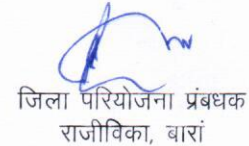 जिला परियोजना प्रबंधक
राजीविका, बारां